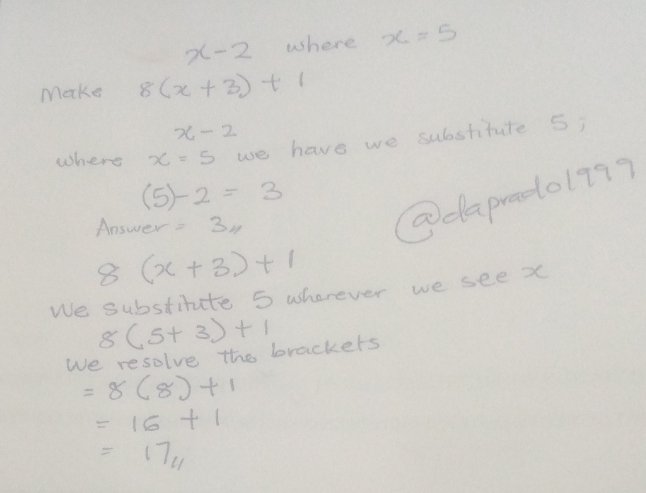 x-2 where x = 5
Make 8(x + 3) + 1
x-2
where x = 5 we have we substitute 5;
(5)-2 = 3
Answer = 3,,
@daprado1999
8 (x + 3) + 1
We substitute 5 wherever we see x
8(5+ 3) + 1
We resolve the brackets
= 8(8) + 1
= 16 + 1
= 17,,